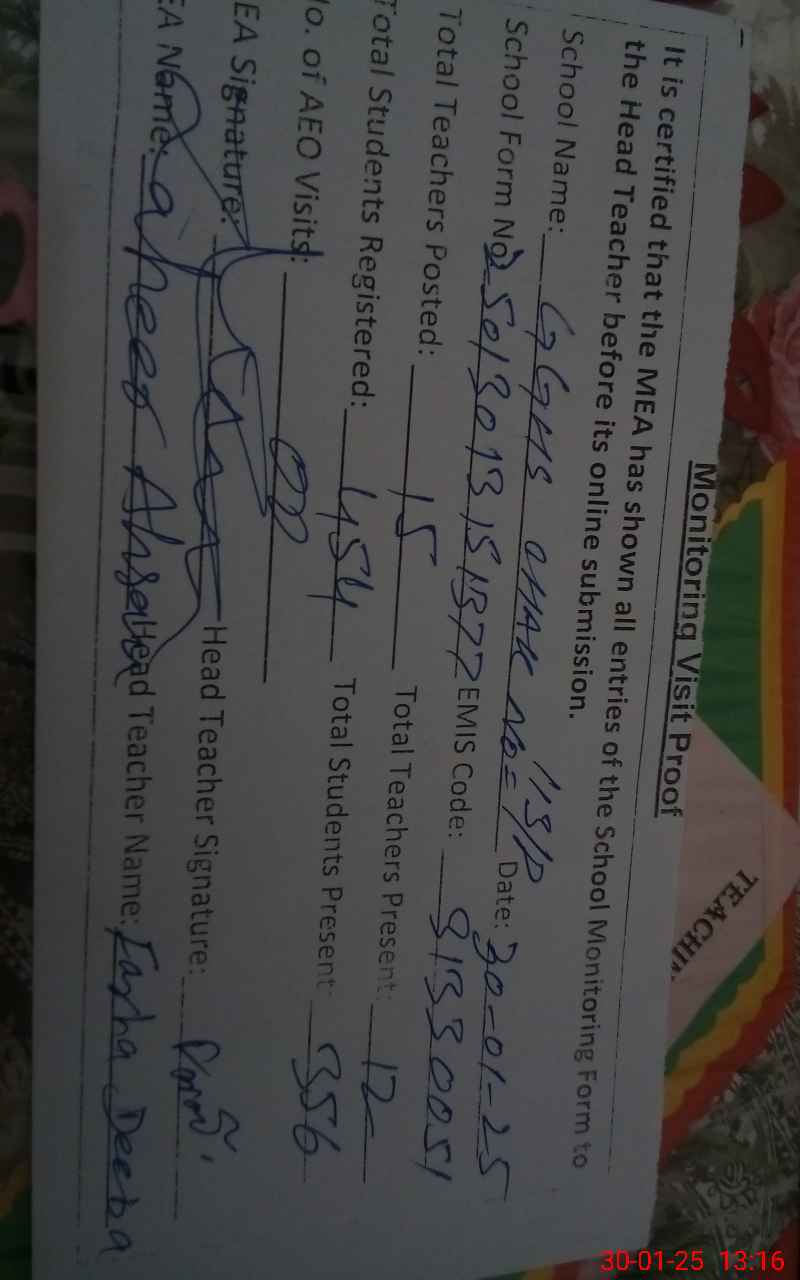 Monitoring Visit Proof
It is certified that the MEA has shown all entries of the School Monitoring Form to
the Head Teacher before its online submission.
School Name: GGHS CHAK No= 113/P Date: 30-01-25
School Form No: EMIS Code: 31330051
Total Teachers Posted: 15 Total Teachers Present: 12
Total Students Registered: 454 Total Students Present: 356
No. of AEO Visits: 00
EA Signature: Head Teacher Signature:
EA Name: Head Teacher Name: Deeba
TEACHI
30-01-25 13:16